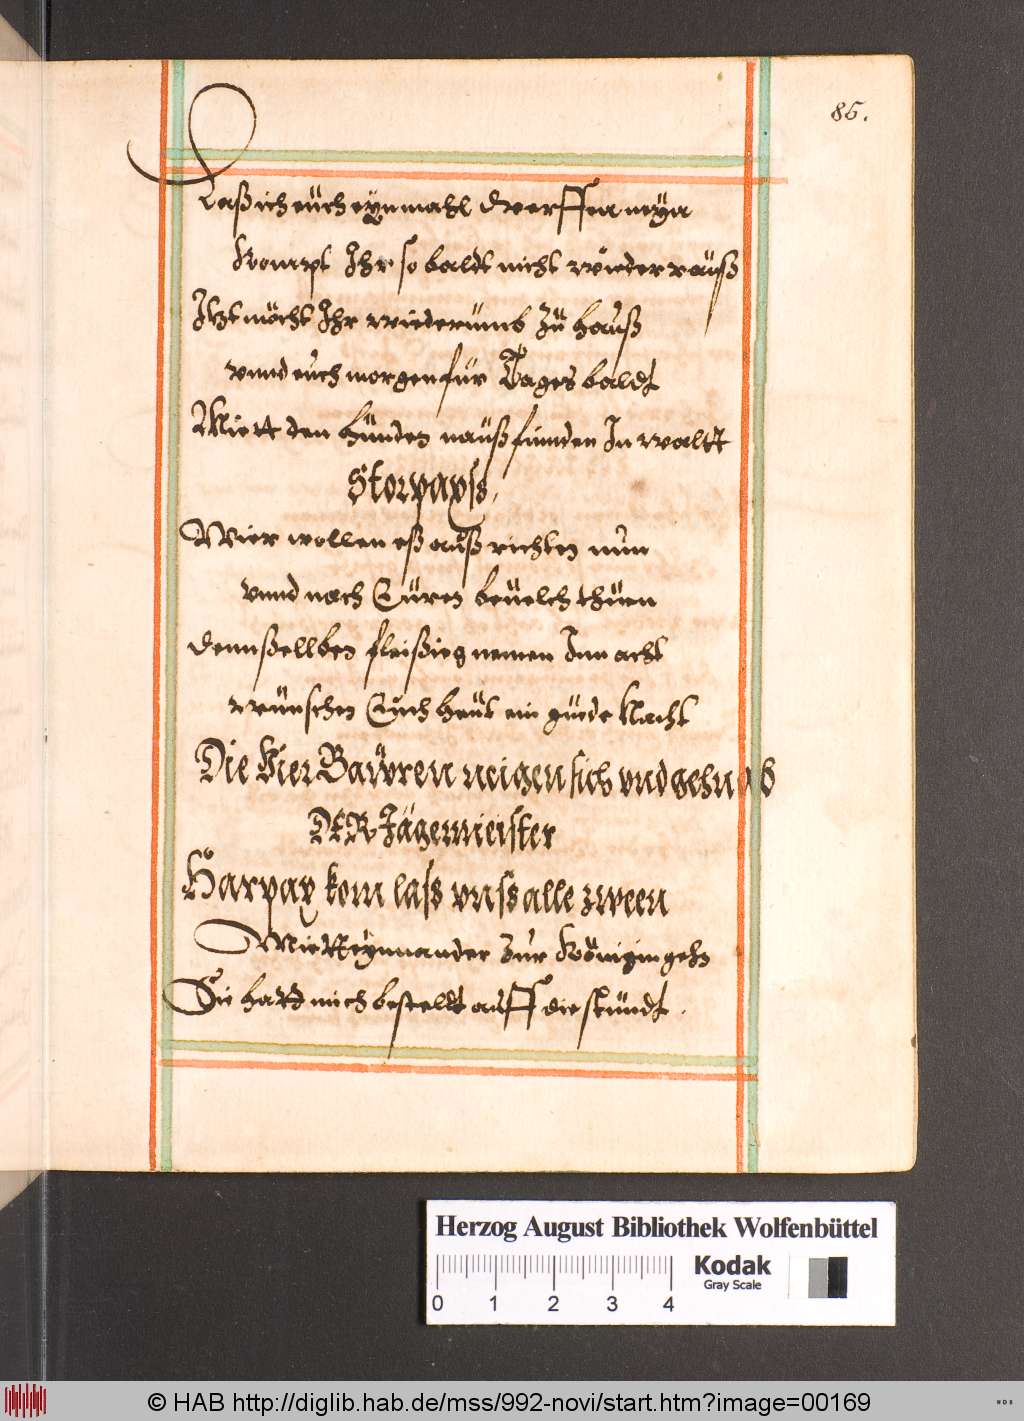 85.
Laß ich euch eynmahl dverffen neyn
Kompt Ihr so baldt nicht wieder rauß
Itzt möcht Ihr wiederümb zü hauß
vnnd euch morgen für Tages baldt
Mitt den hünden nauß finden In waltt
Storpax
Wier wollen eß auß richten nun
vnnd nach Eüren beuelch thüen
dennßellben fleißig nemen Inn acht
wünschen Euch heüt ein güde Nacht
Die Vier Bawren neigen sich vnd gehn ab
DER Jägemeister
Harpax kom lass vnss alle zween
Mitt Eynnander Zur Königin gehn
Sie hatt mich bestellt auff die stündt.
Herzog August Bibliothek Wolfenbüttel
Kodak
Gray Scale
0 1 2 3 4
© HAB http://diglib.hab.de/mss/992-novi/start.htm?image=00169